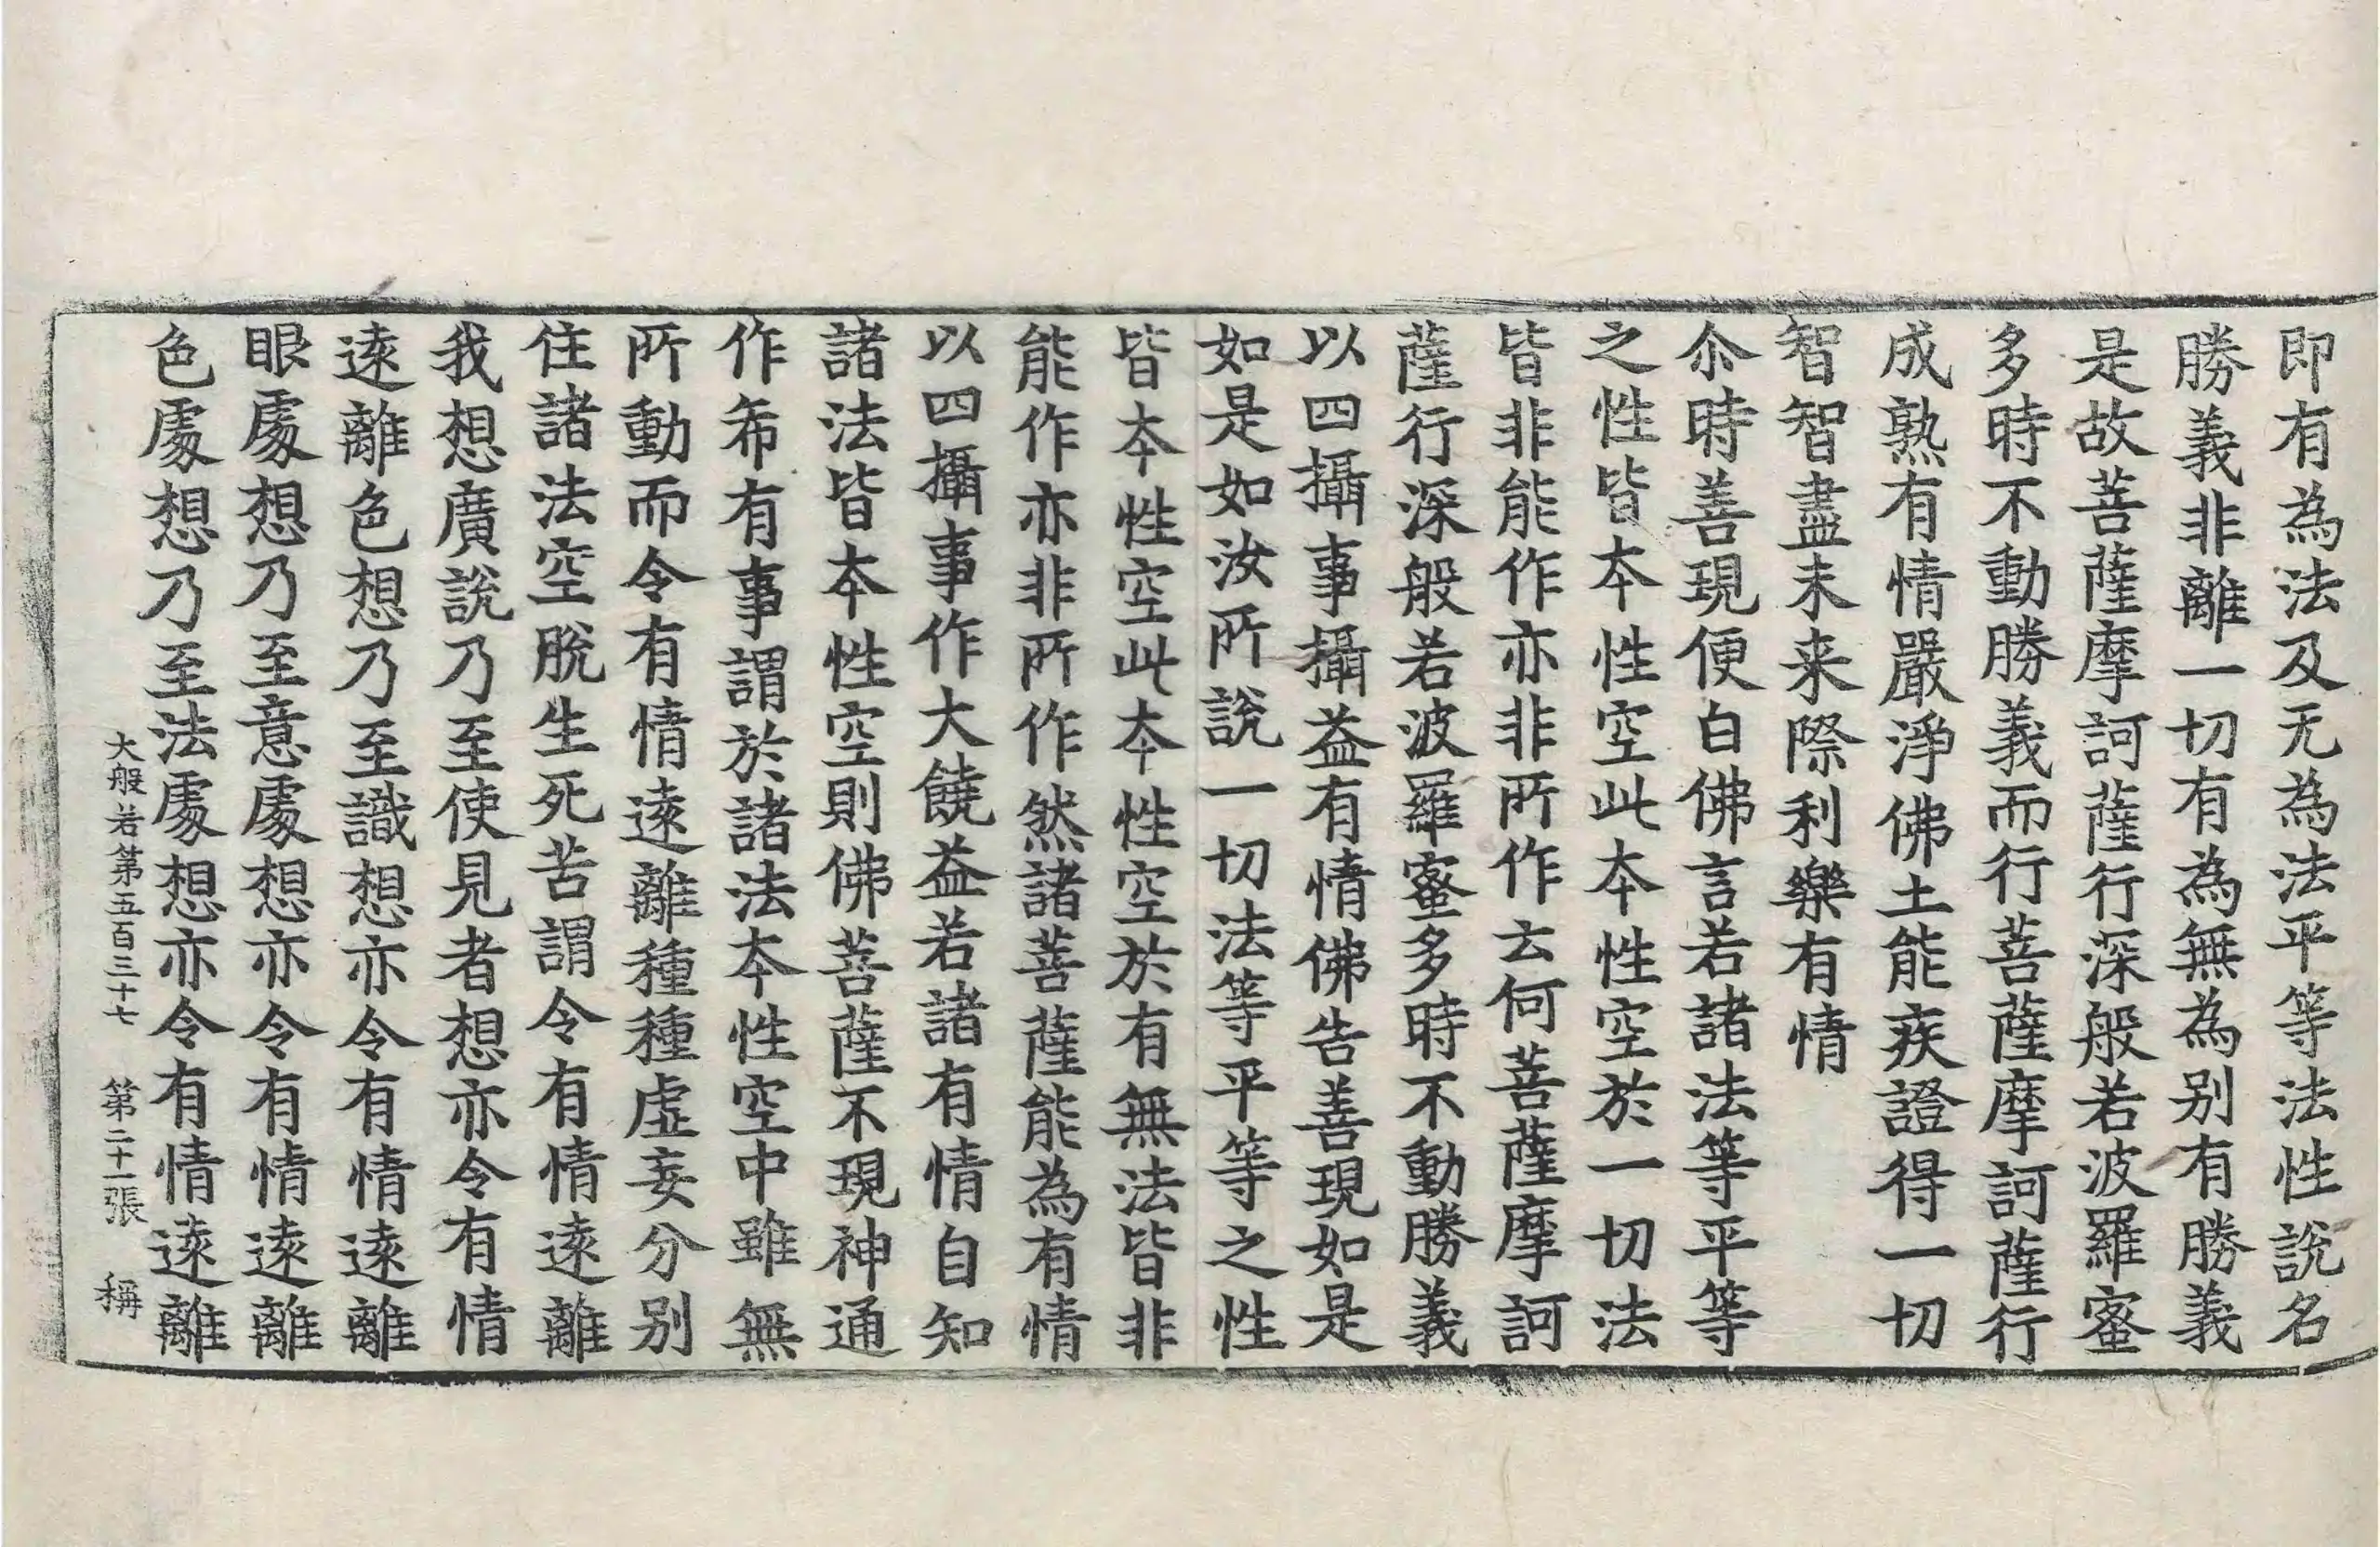 即有為法及无為法平等法性說名
勝義非離一切有為無為別有勝義
是故菩薩摩訶薩行深般若波羅蜜
多時不動勝義而行菩薩摩訶薩行
成熟有情嚴淨佛土能疾證得一切
智智盡未来際利樂有情
尒時善現便白佛言若諸法等平等
之性皆夲性空此夲性空於一切法
皆非能作亦非所作云何菩薩摩訶
薩行深般若波羅蜜多時不動勝義
以四攝事攝益有情佛告善現如是
如是如汝所說一切法等平等之性
皆夲性空此夲性空於有無法皆非
能作亦非所作然諸菩薩能為有情
以四攝事作大饒益若諸有情自知
諸法皆夲性空則佛菩薩不現神通
作希有事謂於諸法夲性空中雖無
所動而令有情遠離種種虛妄分別
住諸法空脫生死苦謂令有情遠離
我想廣說乃至使見者想亦令有情
遠離色想乃至識想亦令有情遠離
眼處想乃至意處想亦令有情遠離
色處想乃至法處想亦令有情遠離
大般若第五百三十七 第二十一張 稱